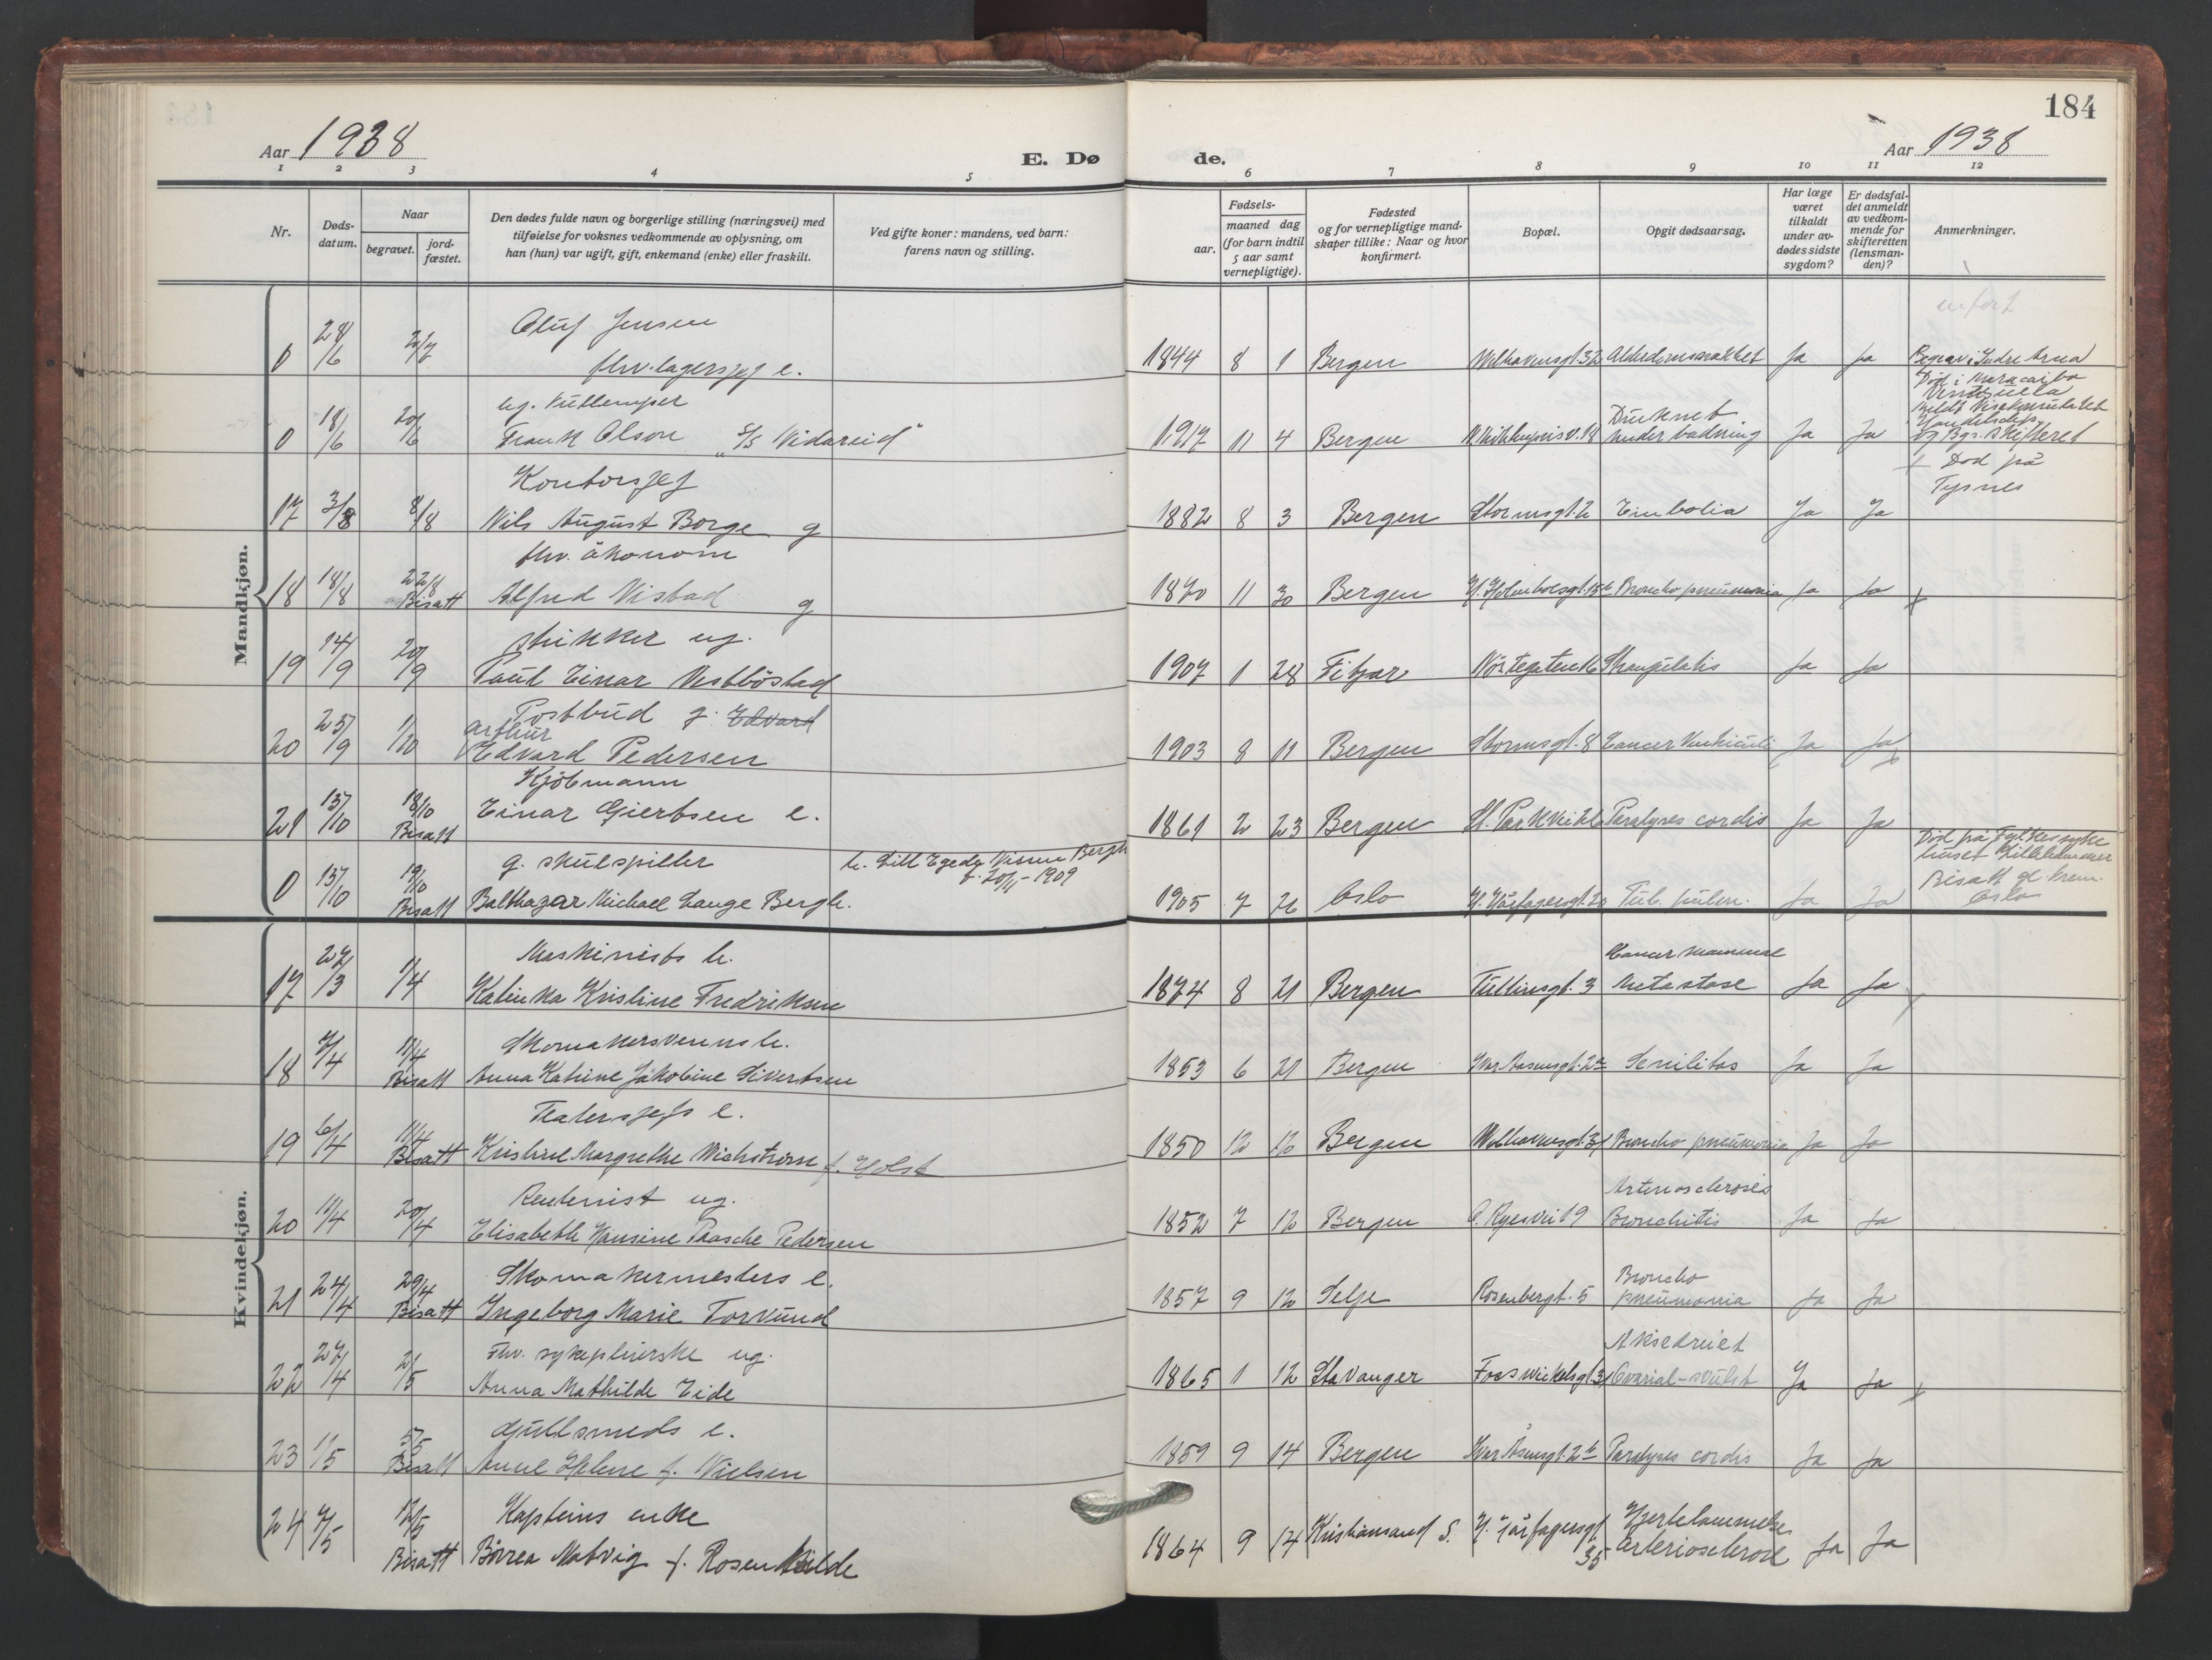 184
Aar 1938
E. Dø
de.
Aar 1938
1 2 3 4 5 6 7 8 9 10 11 12
Nr.
Døds-
datum.
Naar
begravet.
jord-
fæstet.
Den dødes fulde navn og borgerlige stilling (næringsvei) med
tilføielse for voksnes vedkommende av oplysning, om
han (hun) var ugift, gift, enkemand (enke) eller fraskilt.
Ved gifte koner: mandens, ved barn:
farens navn og stilling.
Fødsels-
aar.
maaned dag
(for barn indtil
5 aar samt
vernepligtige).
Fødested
og for vernepligtige mand-
skaper tillike: Naar og hvor
konfirmert.
Bopæl.
Opgit dødsaarsag.
Har læge
været
tilkaldt
under av-
dødes sidste
sygdom?
Er dødsfal-
det anmeldt
av vedkom-
mende for
skifteretten
(lensman-
den)?
Anmerkninger.
Mandkjøn.
Oluf Jensen
0 28/6 2/7 fhv. lagersjef e. 1844 8 1 Bergen Welhavensgt. 32 Ja Ja Begrav. i Indre Arna
Død i Maracaibo
Venezuela
0 18/6 20/6 Frank Olson S/S "Vidareid" 1917 11 4 Bergen Druknet
under badning Ja Ja
og Bgs. Skifteret
Kontorsjef
17 3/8 8/8 Nils August Borge g 1882 8 3 Bergen Stormsgt. 2 Embolia Ja Ja + Død på
Tysnes
fhv. økonom
18 18/8 22/8 Bisatt Alfred Visbad g 1870 11 30 Bergen Broncho pneumonia Ja Ja x
19 14/9 20/9 ug.
Paul Einar Vestbøstad 1907 1 28 Fitjar Nöstegaten Strangulatis Ja Ja
Postbud g. Edvard
Arthur
20 25/9 1/10 Edvard Pedersen 1903 8 11 Bergen Stormsgt. 8 Cancer Ventriculi Ja Ja x
Kjöbmann
21 15/10 18/10 Bisatt Einar Giertsen e. 1861 2 23 Bergen St. Parkvei Paralyses cordis Ja Ja
g. skuespiller
0 15/10 19/10 Bisatt Balthazar Michael Lange Bergh. h. Lill Egede Nissen Bergh
f. 20/11-1909
1905 7 26 Oslo H. Hårfagersgt. 20 Tub. pulm. Ja Ja
Død på Fylkessyke
huset Lillehammer
Bisatt gl. krem.
Oslo
Kvindekjøn.
Maskinists h.
17 27/3 1/4 Katinka Kristine Fredriksen 1874 8 21 Bergen Tullinsgt. 3 Cancer mammae
Metastase Ja Ja
Skomakersvenns h.
18 7/4 11/4 Bisatt Anna Katrine Jakobine Sivertsen 1853 6 21 Bergen Ivar Aasensgt. 2a Senilitas Ja Ja
Teatersjefs e.
19 6/4 11/4 Bisatt Kristine Margrethe Wichstrøm f. Holst 1850 12 12 Bergen Welhavensgt. 31 Broncho pneumonia Ja Ja
Rentenist ug.
20 11/4 20/4 Elisabeth Hansine Paasche Pedersen 1852 7 12 Bergen O. Ryesvei 19 Arteriosclerosis
Bronchitis Ja Ja
Skomakermesters e.
21 24/4 29/4 Bisatt Ingeborg Marie Torvund 1857 9 12 Selje Rosenbergt. 5 Broncho
pneumonia Ja Ja
Fhv. sykepleierske ug.
22 27/4 2/5 Anna Mathilde Eide 1865 1 12 Stavanger Foss Ovarial-svulst Ja Ja x
Gullsmeds e.
23 1/5 5/5 Bisatt Anne Helene f. Nielsen 1859 9 14 Bergen Ivar Åsensgt. 2b Paralyses cordis Ja Ja
Kapteins enke
24 7/5 12/5 Bisatt Børrea Natvig f. Rosenkilde 1864 9 14 Kristiansand S. H. Hårfagersgt.
35 Hjertelammelse
Arteriosclerose Ja Ja